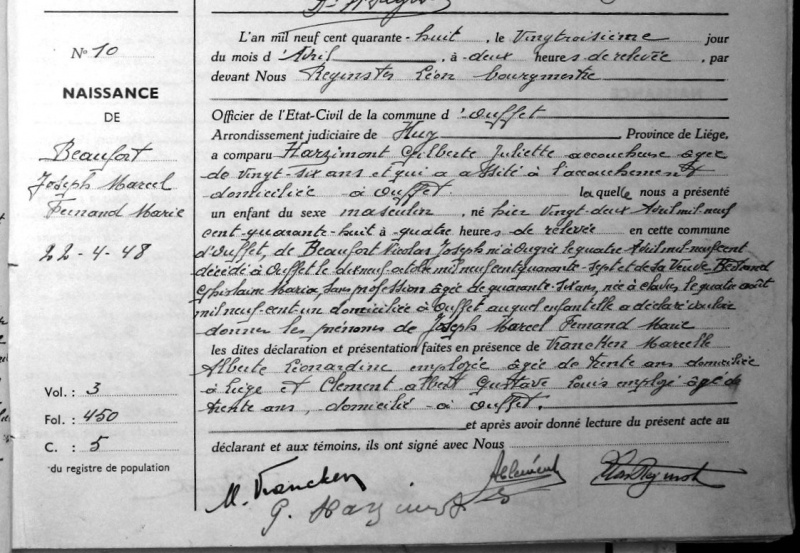 N° 10
NAISSANCE
DE
Beaufort
Joseph Marcel
Fernand Marie
22-4-48
Vol.: 3
Fol.: 450
C.: 5
du registre de population
L'an mil neuf cent quarante-huit, le vingtroisième jour
du mois d'Avril, à deux heures de relevée, par
devant Nous Reginster Léon bourgmestre
Officier de l'Etat-Civil de la commune d'Ouffet
Arrondissement judiciaire de Huy Province de Liége,
a comparu Harzimont Gilberte Juliette accoucheuse âgée
de vingt-six ans et qui a assité à l'accouchement
domiciliée à Ouffet laquelle nous a présenté
un enfant du sexe masculin, né hier vingt-deux Avril mil neuf
cent-quarante-huit à quatre heures de relevée en cette commune
d'Ouffet, de Beaufort Nicolas Joseph né à Ougrée le quatre Avril mil-neuf cent
décédé à Ouffet le dix neuf octobre mil neuf cent quarante-sept et de sa Veuve
Ghislaine Maria, sans profession âgée de quarante-six ans, née à Clavier le quatre août
mil-neuf-cent-un domiciliée à Ouffet auquel enfant elle a déclaré vouloir
donner les prénoms de Joseph Marcel Fernand Marie
les dites déclaration et présentation faites en présence de Francken Marcelle
Alberte Léonardine employée âgée de trente ans domiciliée
à Liège et Clement Albert Gustave Louis employé âgé de
trente ans, domicilié à Ouffet.
et après avoir donné lecture du présent acte au
déclarant et aux témoins, ils ont signé avec Nous
M. Francken
G. Harzimont